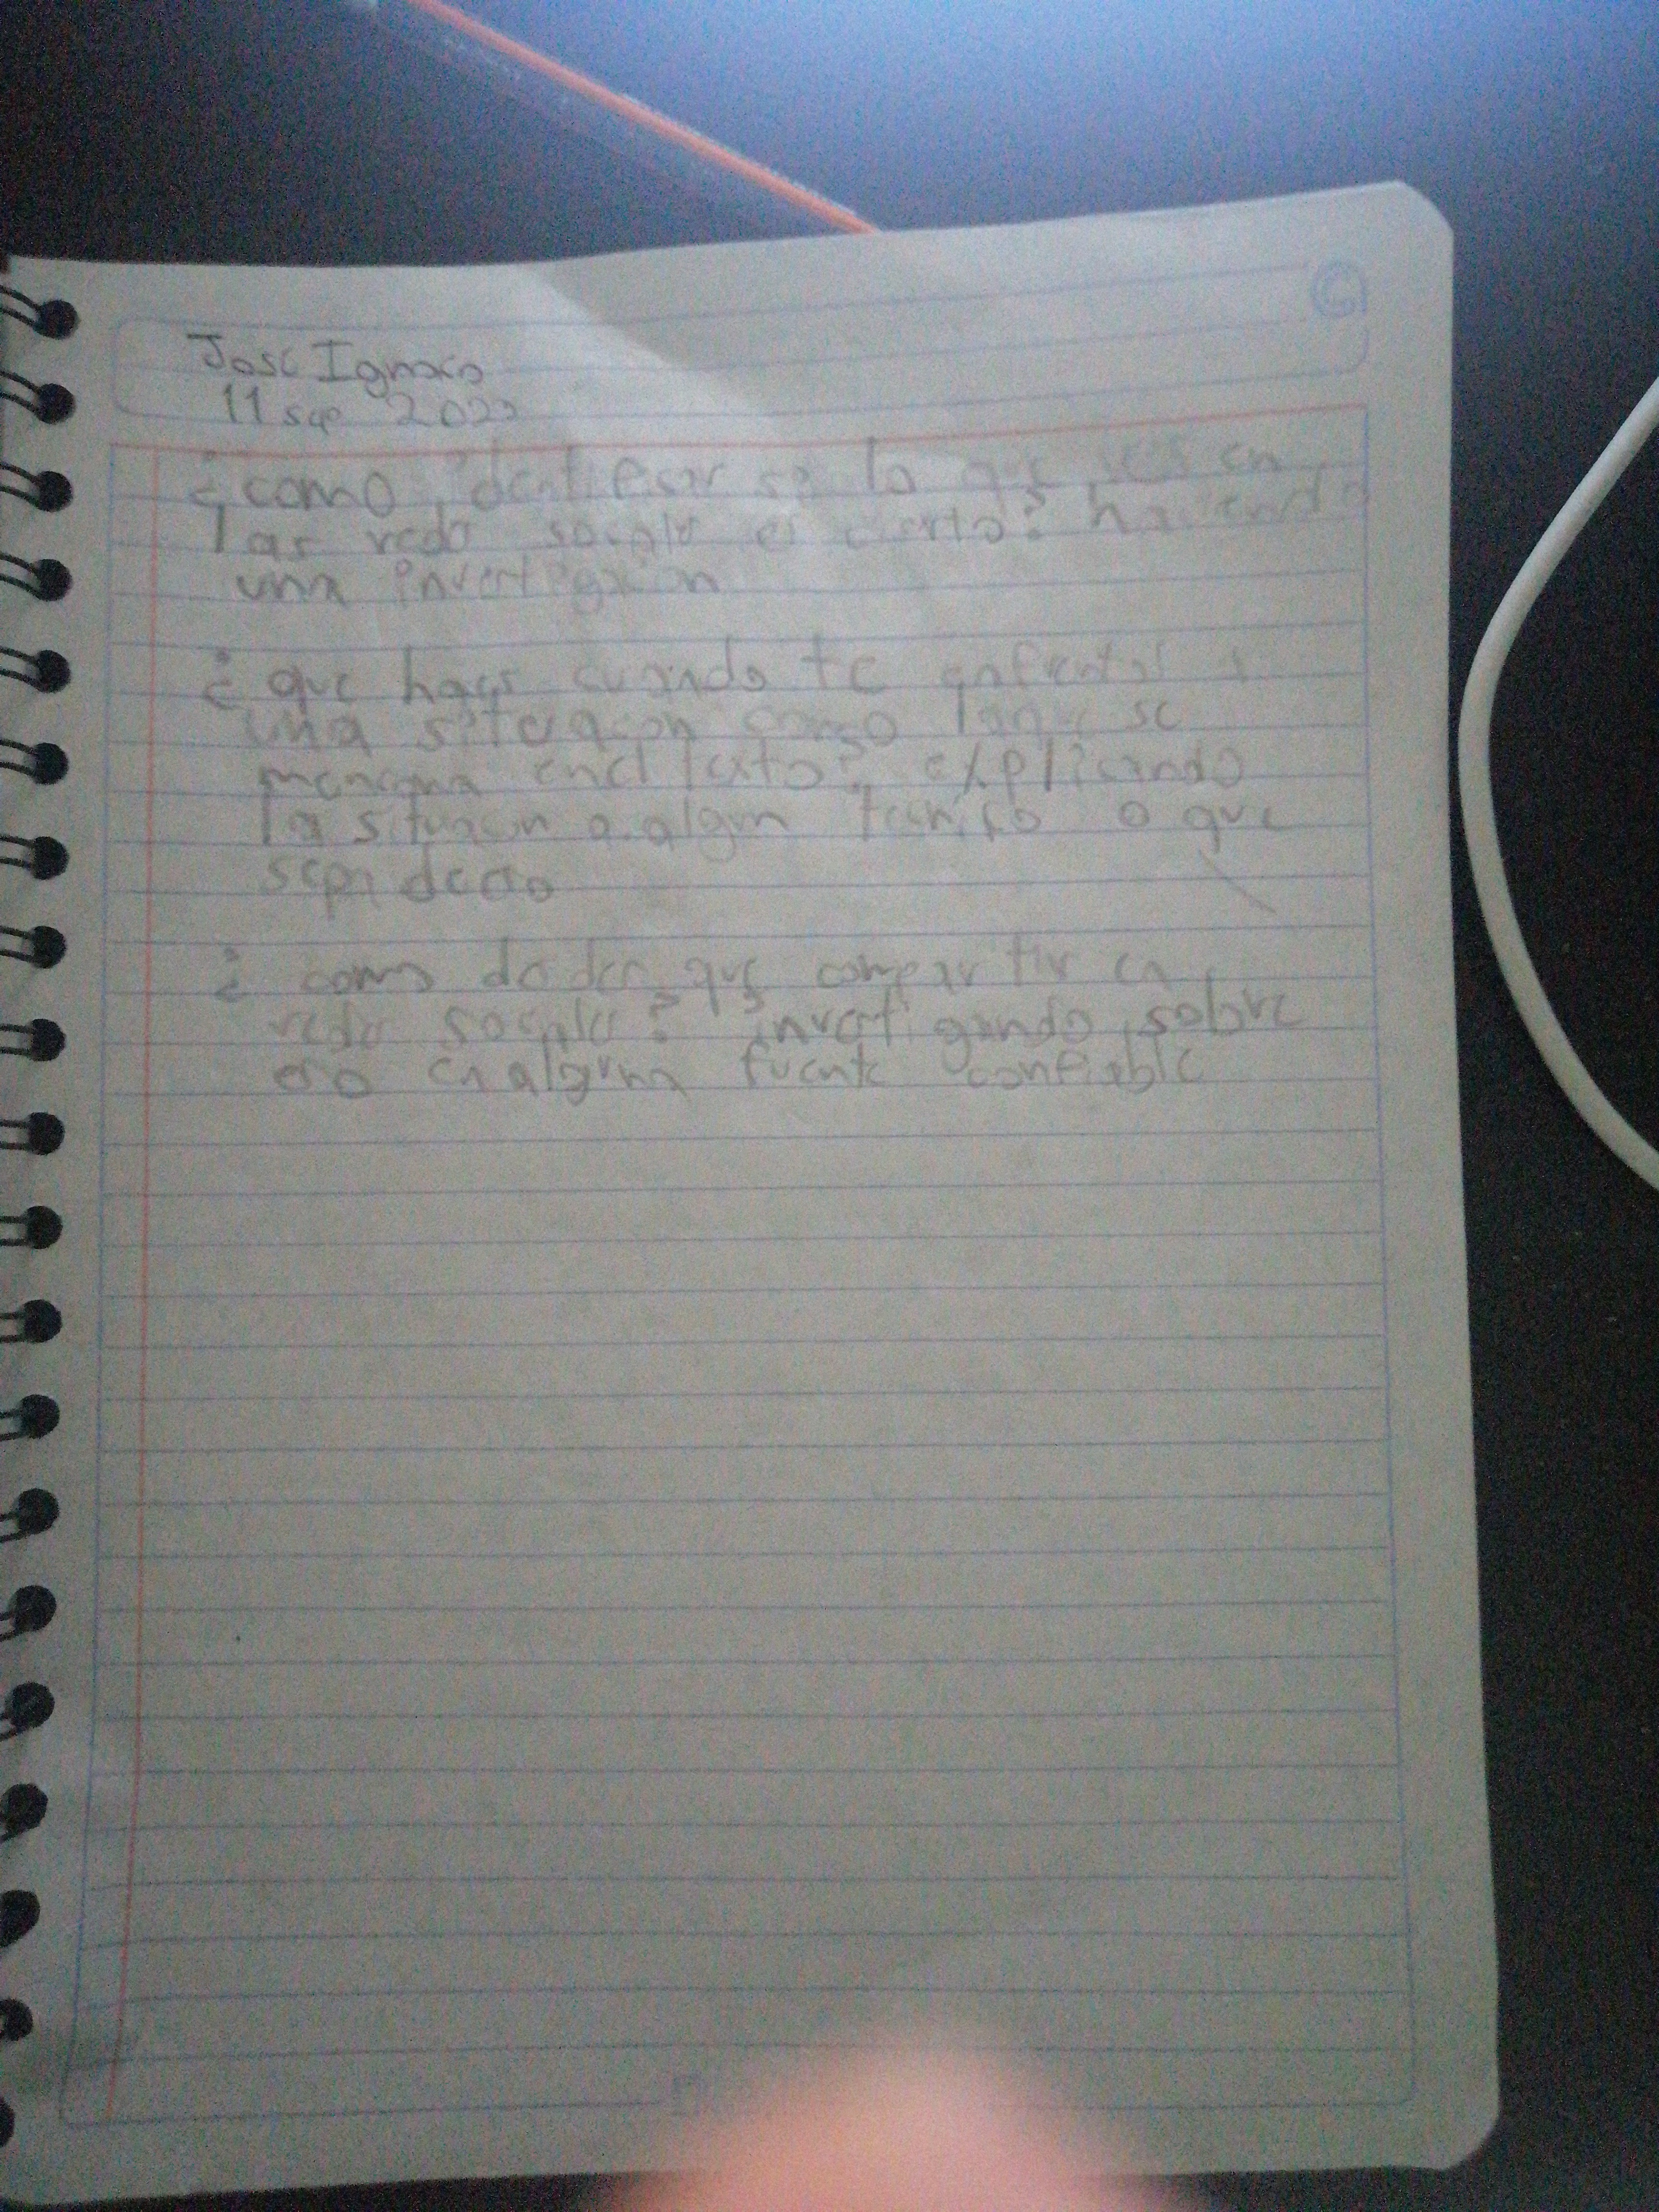 Jose Ignacio
11 sep 202
¿como identificar si lo que ves en
las redes sociales es cierto? haciendo
una investigacion
¿que haces cuando te enfrentas a
una situacion como la que se
menciona en el texto? explicando
la situacion a algun tecnico o que
sepa de eso
¿como decides que compartir en
redes sociales? investigando sobre
eso en alguna fuente confiable